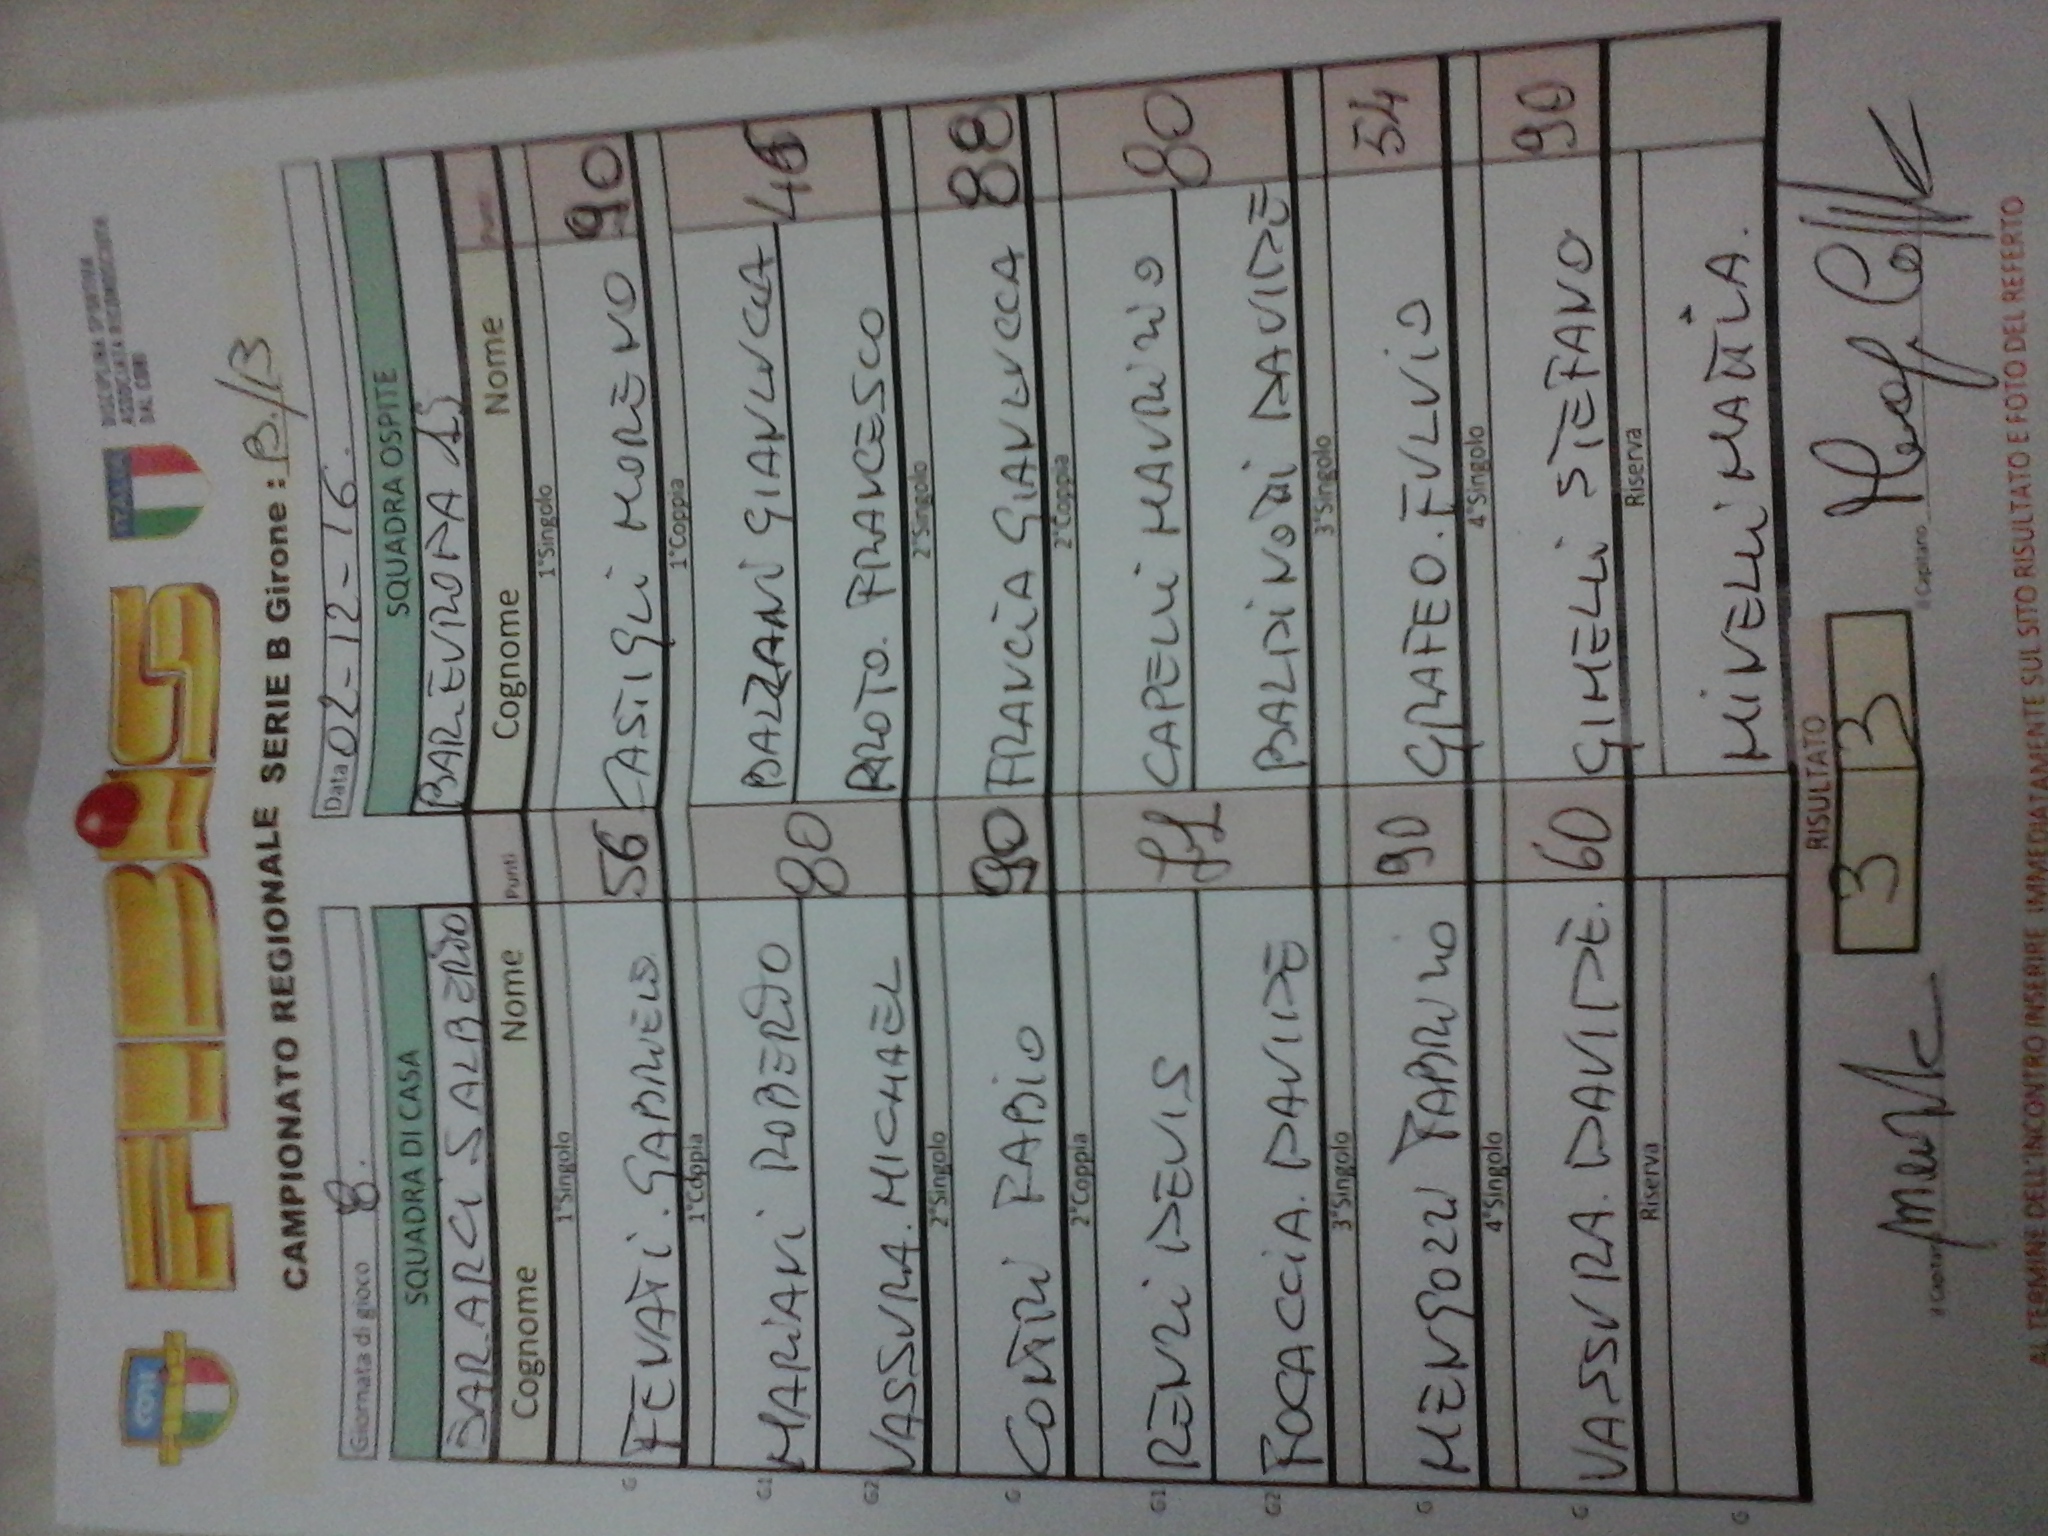 CONI
FIBiS
ITALIA
DISCIPLINA SPORTIVA
ASSOCIATA RICONOSCIUTA
DAL CONI
CAMPIONATO REGIONALE SERIE B Girone : B./B
Giornata di gioco 8. Data 02-12-16.
SQUADRA DI CASA SQUADRA OSPITE
BAR ARCI S ALBERTO BAR EUROPA
Cognome Nome Punti Cognome Nome Punti
1°Singolo 1°Singolo
G FENATI. GABRIELE 56 CASTIGLI MORENO 90
1°Coppia 1°Coppia
G1 MARIANI ROBERTO 80 BALZANI GIANLUCA 46
G2 VASSURA. MICHAEL PROTO. FRANCESCO
2°Singolo 2°Singolo
G CONTRI FABIO 90 FRANCIA GIANLUCCA 88
2°Coppia 2°Coppia
G1 RENZI DEVIS 77 CAPELLI MAURIZIO 80
G2 FOCACCIA. DAVIDE BALDINOTTI DAVIDE
3°Singolo 3°Singolo
G MENGOZZI FABRIZIO 90 GRAFEO. FULVIO 54
4°Singolo 4°Singolo
G VASSURA. DAVIDE. 60 GIMELLI STEFANO 90
Riserva Riserva
G MINELLI MATTIA.
RISULTATO
il Capitano 3 3 il Capitano
AL TERMINE DELL'INCONTRO INSERIRE IMMEDIATAMENTE SUL SITO RISULTATO E FOTO DEL REFERTO